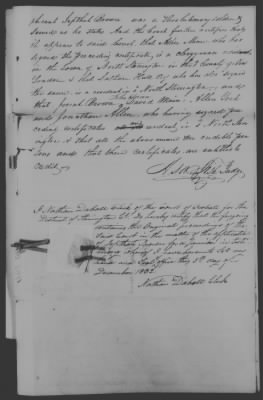 plicant Jepthah Brown was a Revolutionary soldier &
served as he states. And the Court further certifies that
it appears to said Court that Allen Main who has
signed the preceding certificate, is a clergyman resident
in the town of North Stonington in the County of New
London & that Latham Hull Esq who has also signed
the same, is a resident in North Stonington, and
that Josiah Brown David Main, Allen
and Jonathan Allen, who having signed
ceding certificates resident in North Ston
ington & that all the above named are credible per
sons and that their certificates are entitled to
credit.
Judge
I Nathan Daboll Clerk of the Court of Probate for the
District of Stonington Ct. Do hereby certify that the foregoing
contains the original proceedings of the
said Court in the matter of the application
of Jepthah Brown for a pension in testi
mony whereof I have hereunto set my
hand and Seal office this 5th day of
December 1832.
Nathan Daboll Clerk